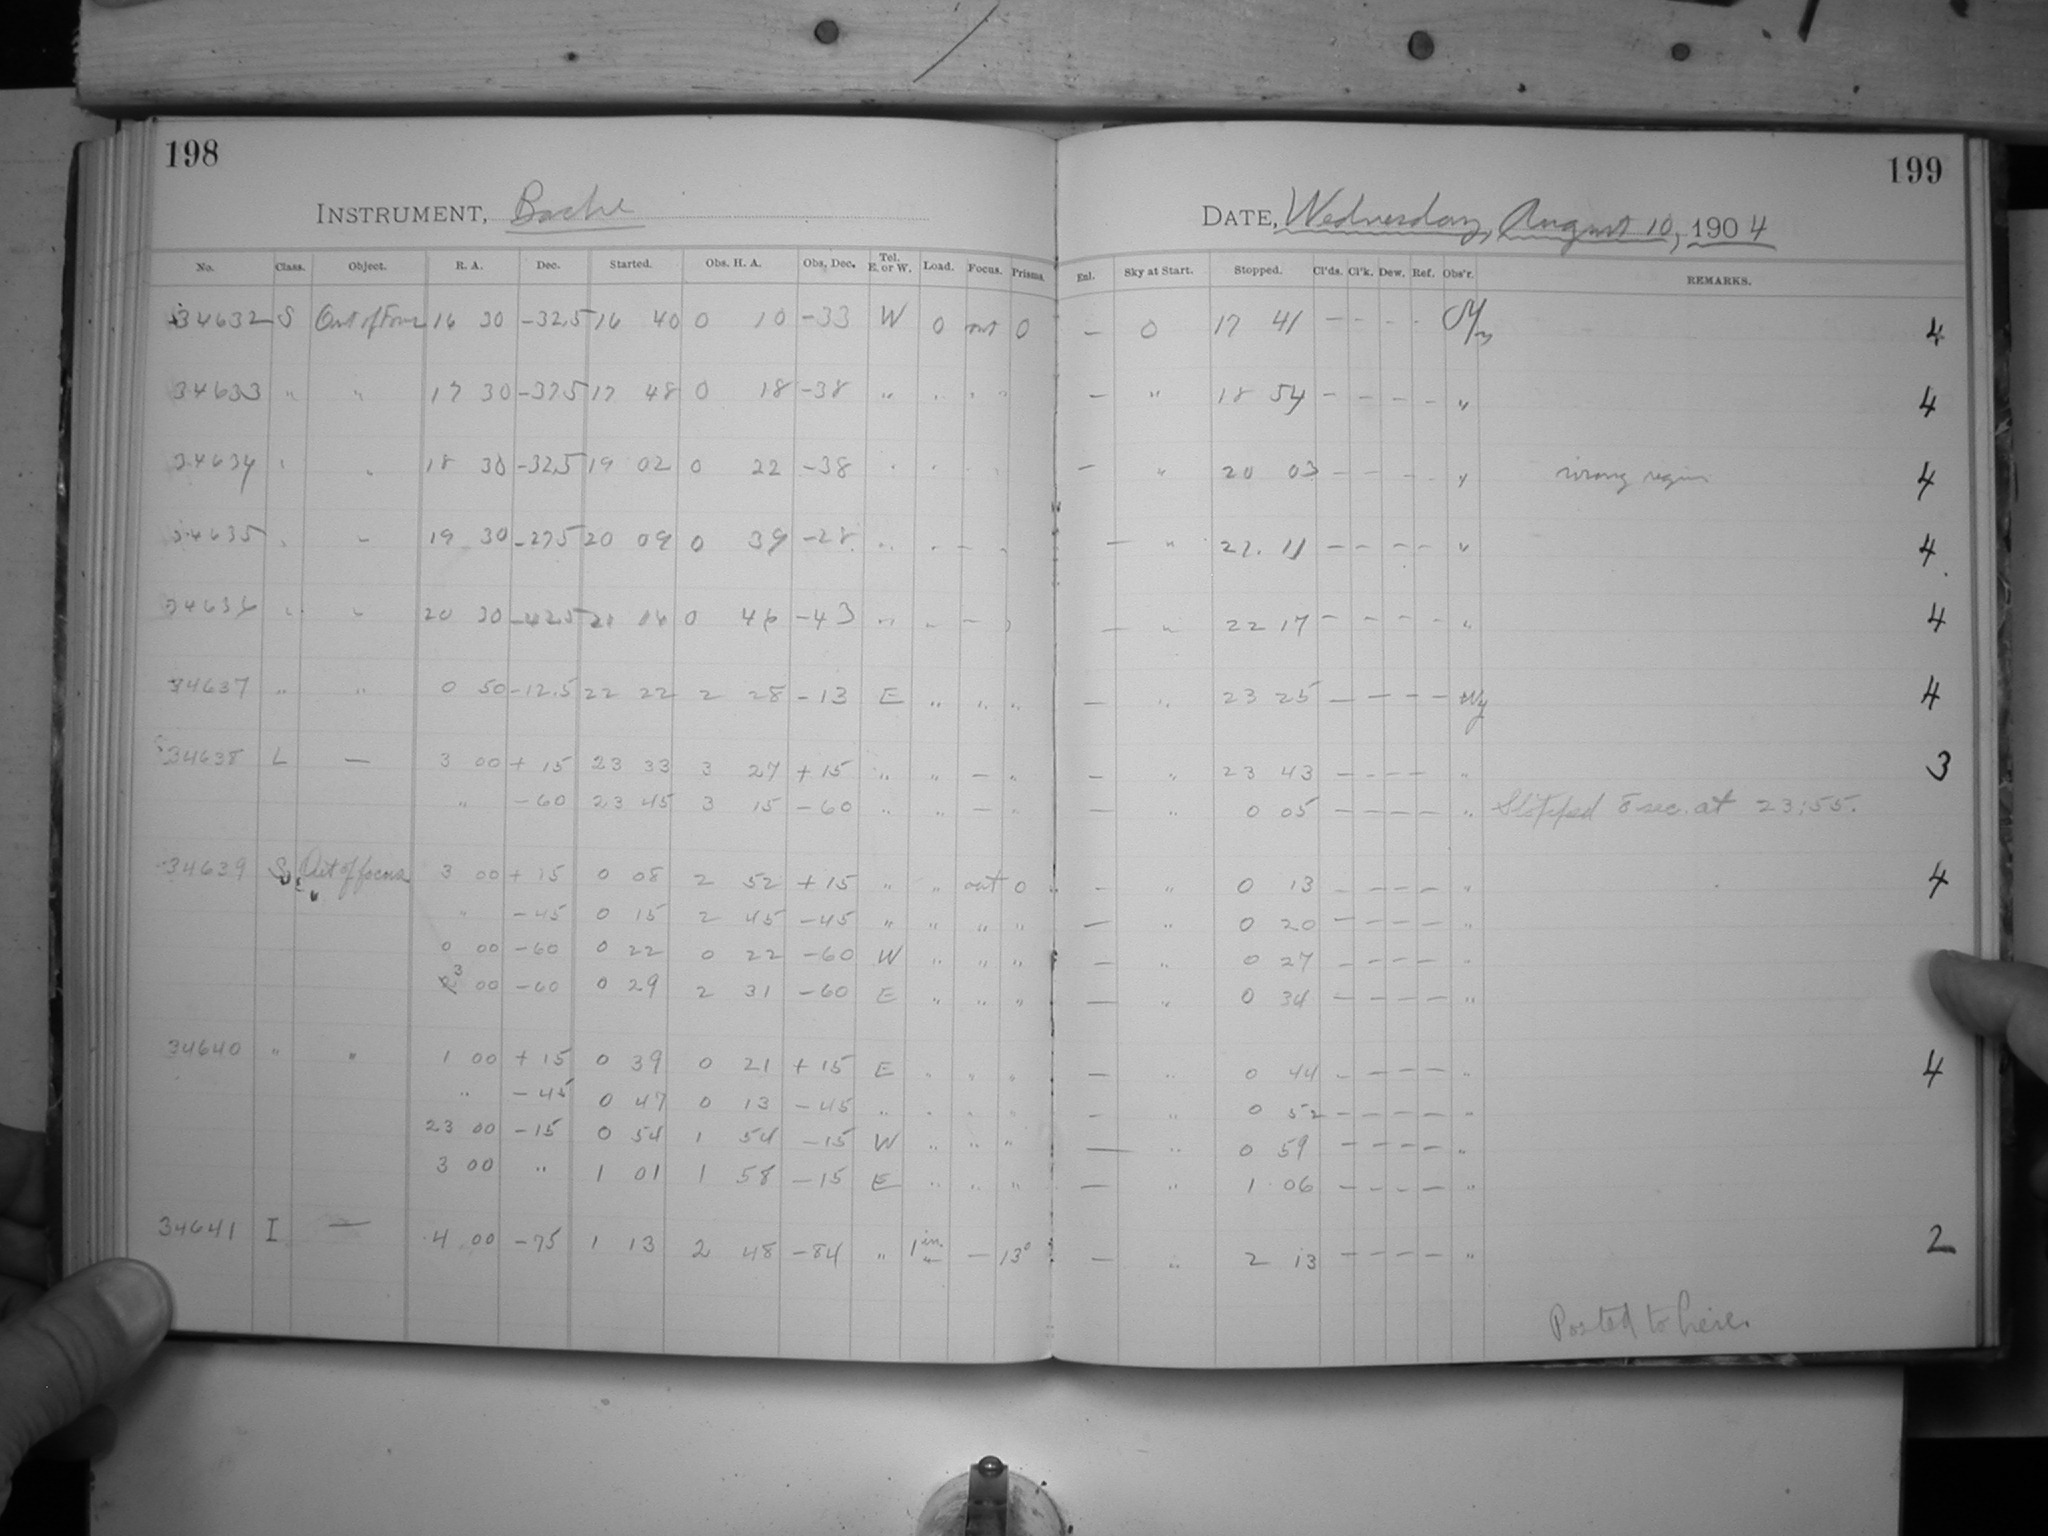 198
199
INSTRUMENT, Bache
DATE, Wednesday, August 10, 1904
No. Class. Object. R. A. Dec. Started. Obs. H. A. Obs. Dec. Tel. E. or W. Load. Focus. Prisms. Enl. Sky at Start. Stopped. Cl'ds. Cl'k. Dew. Ref. Obs'r. REMARKS.
34632 S Out of Focus 16 30 -32.5 16 40 0 10 -33 W 0 out 0 — 0 17 41 - - - - 4
34633 " " 17 30 -37.5 17 48 0 18 -38 " " " " — " 18 54 - - - - " 4
34634 " " 18 30 -32.5 19 02 0 22 -38 " " " " — " 20 03 - - - - " wrong region 4
34635 " " 19 30 -27.5 20 09 0 39 -28 " " — " — " 11 - - - - " 4
34636 " " 20 30 -42.5 0 46 -43 " " — " — " 22 17 - - - - " 4
34637 " " 0 50 -12.5 22 22 2 28 -13 E " " " — " 23 25 — — — — Wy 4
34638 L — 3 00 + 15 23 33 3 27 + 15 " " — " — " 23 43 — — — — " 3
" -60 23 45 3 15 -60 " " — " — " 0 05 — — — — " Stopped 8 sec. at 23:55.
34639 S Out of focus 3 00 + 15 0 08 2 52 + 15 " " out 0 — " 0 13 — — — — " 4
" -45 0 15 2 45 -45 " " " " — " 0 20 — — — — "
0 00 -60 0 22 0 22 -60 W " " " — " 0 27 — — — — "
3 00 -60 0 29 2 31 -60 E " " " — " 0 34 — — — — "
34640 " " 1 00 + 15 0 39 0 21 + 15 E " " " — " 0 44 — — — — " 4
" -45 0 47 0 13 -45 " " " " — " 0 52 — — — — "
23 00 -15 0 54 1 54 -15 W " " " — " 0 59 — — — — "
3 00 " 1 01 1 58 -15 E " " " — " 1 06 — — — — "
34641 I — 4 00 -75 1 13 2 48 -84 " 1 in. — 13° — " 2 13 — — — — " 2
Posted to here.